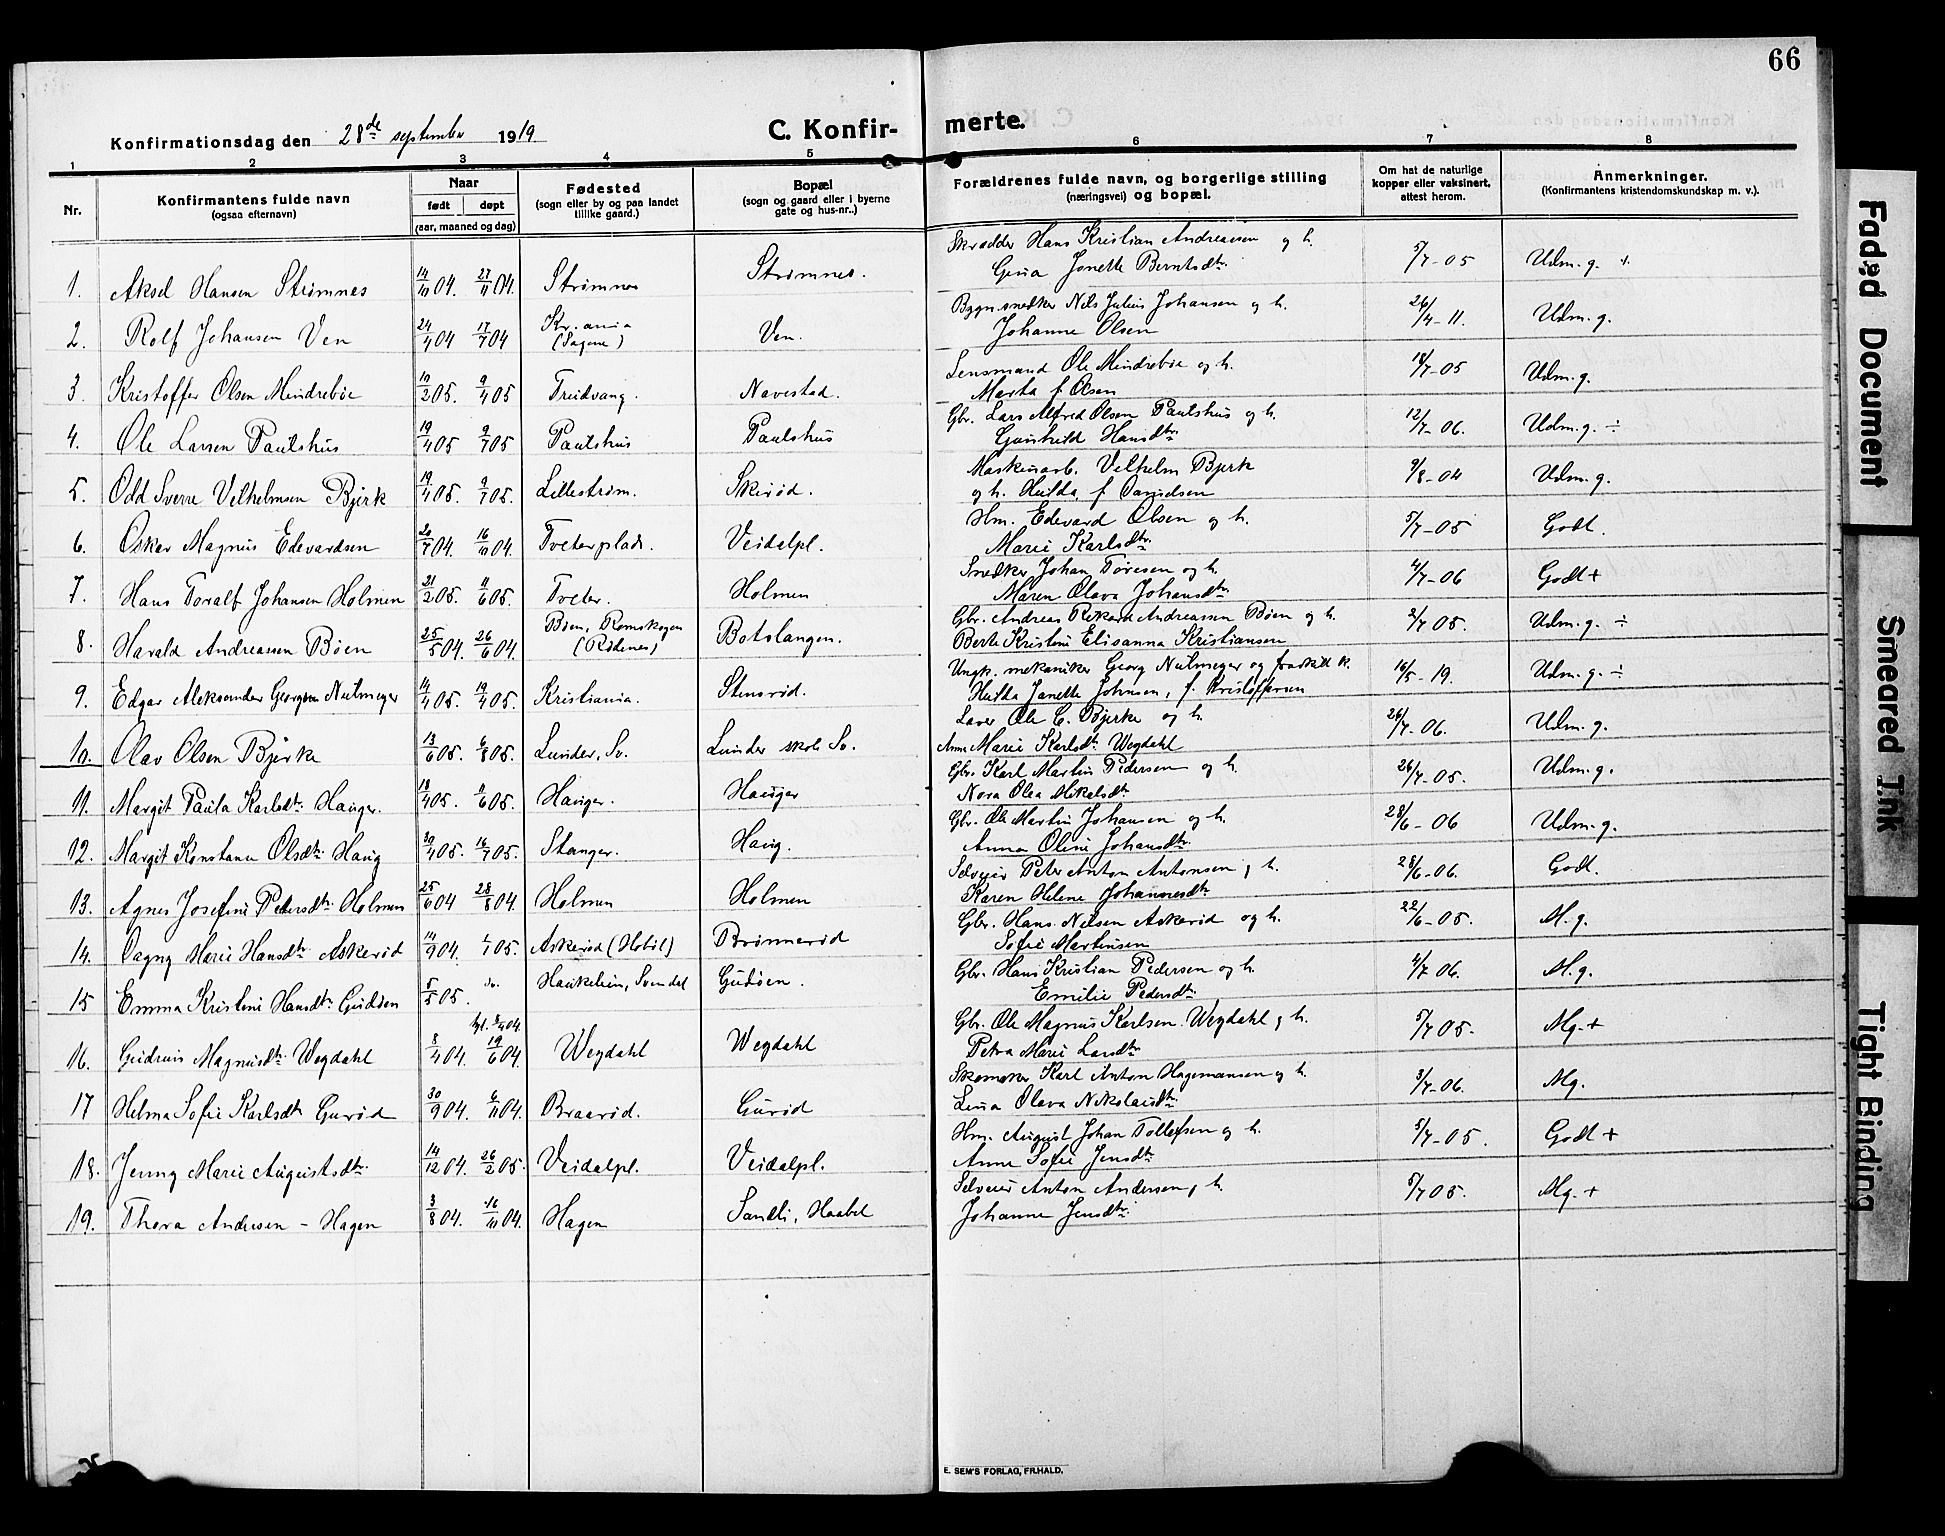 66
Konfirmationsdag den 28de september 1919
C. Konfirmerte.
1 2 3 4 5 6 7 8
Nr.
Konfirmantens fulde navn
(ogsaa efternavn)
Naar
født døpt
(aar, maaned og dag)
Fødested
(sogn eller by og paa landet
tillike gaard.)
Bopæl
(sogn og gaard eller i byerne
gate og hus-nr..)
Forældrenes fulde navn, og borgerlige stilling
(næringsvei) og bopæl.
Om hat de naturlige
kopper eller vaksinert,
attest herom.
Anmerkninger.
(Konfirmantens kristendomskundskap m. v.).
1. Aksel Hansen Strømnes 14/10 04. 27/11 04. Strømnes Strømnes. Skrædder Hans Kristian Andreassen og h. 5/7-05 Udm. g. +
Gina Jonette Berntsdtr.
2. Rolf Johansen Ven 24/4 04 17/7 04 Kr.ania (Sagene) Ven. Bygn.snedker Nils Julius Johansen og h. 26/4-11. Udm. g.
Johanne Olsen
3. Kristoffer Olsen Mindrebøe 10/2 05. 9/4 05 Treidvang. Navestad. Lensmand Ole Mindrebøe og h. 18/7-05 Udm. g.
Marta f. Olsen
4. Ole Larsen Paulshus 19/4 05 9/7 05 Paulshus Paulshus Gbr. Lars Alfred Olsen Paulshus og h. 12/7-06. Udm. g. ÷
Gunhild Hansdtr.
5. Odd Sverre Vilhelmsen Bjerk 19/4 05. 9/7 05. Lillestrøm. Skerød. Maskinarb. Vilhelm Bjerk 9/8-04 Udm. g.
og h. Hulda f. Danielsen
6. Oskar Magnus Edevardsen 20/7 04. 16/10 04. Tveterplads. Veidalpl. Hm. Edevard Olsen og h. 5/7-05 Godt.
Marie Karlsdtr.
7. Hans Toralf Johansen Holmen 21/2 05. 11/6 05. Tveter. Holmen Snedker Johan Toresen og h. 4/7-06 Godt +
Maren Olava Johansdtr.
8. Harald Andreassen Bøen 25/5 04. 26/6 04. Bøen, Romskogen (Rødenes) Botslangen. Gbr. Andreas Rikard Andreassen Bøen og h. 3/7 05. Udm. g. ÷
Berte Kristine Elisanna Kristiansen
9. Edgar Aleksander Georgsen Nutmeger 14/4 05. 19/4 05. Kristiania. Stensrød. Ungk. mekaniker Georg Nutmeger og fraskilt k. 16/5-19. Udm. g. ÷
Hulda Janette Johnsen, f. Kristoffersen
10. Olav Olsen Bjerke 13/6 05. 6/8 05. Lunder, Sv. Lunder skole Sv. Lærer Ole C. Bjerke og h. 26/7-06. Udm. g.
Anne Marie Karlsdtr. Wegdahl
11. Margit Paula Karlsdtr. Hauger. 18/4 05. 11/6 05. Hauger. Hauger Gbr. Karl Martin Pedersen og h. 26/7-05. Udm. g.
Nora Olea Mikalsdtr
12. Margit Konstance Olsdtr. Haug 30/4 05. 16/7 05. Stanger. Haug. Gbr. Ole Martin Johansen og h. 28/6-06 Udm. g.
Anna Oline Johansdtr.
13. Agnes Josefine Pedersdtr. Holmen 25/6 04 28/8 04. Holmen Holmen Selveier Peter Anton Antonsen, h. 28/6-06. Godt.
Karen Helene Johannesdtr.
14. Dagny Marie Hansdtr. Askerød 14/9 04. 1/1 05. Askerød (Hobøl) Brønnerød Gbr. Hans Nilsen Askerød og h. 22/6-05. M. g.
Sofie Martinsen
15 Emma Kristine Hansdtr. Gudøen 5/5 05. do. Haukelien, Svendal Gudøen. Gbr. Hans Kristian Pedersen og h. 4/7 06. M. g.
Emilie Pedersdtr.
16. Gudrun Magnusdtr. Wegdahl 8/4 04. hj. 8/4 04. 19/6 04. Wegdahl Wegdahl Gbr. Ole Magnus Karlsen Wegdahl, h. 5/7 05. Mg. +
Petra Marie Larsdtr
17 Helma Sofie Karlsdtr. Gurød 30/9 04. 6/11 04. Braarød. Gurød Skomaker Karl Anton Hagemansen og h. 3/7-06. Mg.
Lina Olava Nikolaisdtr.
18. Jenny Marie Augustsdtr. 14/12 04. 26/2 05. Veidalpl. Veidalpl. Hm. August Johan Tollefsen og h. 5/7-05. Godt +
Anne Sofie Jensdtr.
19. Thora Andersen - Hagen 3/8 04. 16/10 04. Hagen Sandli, Haabøl Selveier Anton Andersen, h. 5/7 05. Mg. +
Johanne Jensdtr.
E. SEM'S FORLAG, FR.HALD.
Faded Document
Smeared Ink
Tight Binding